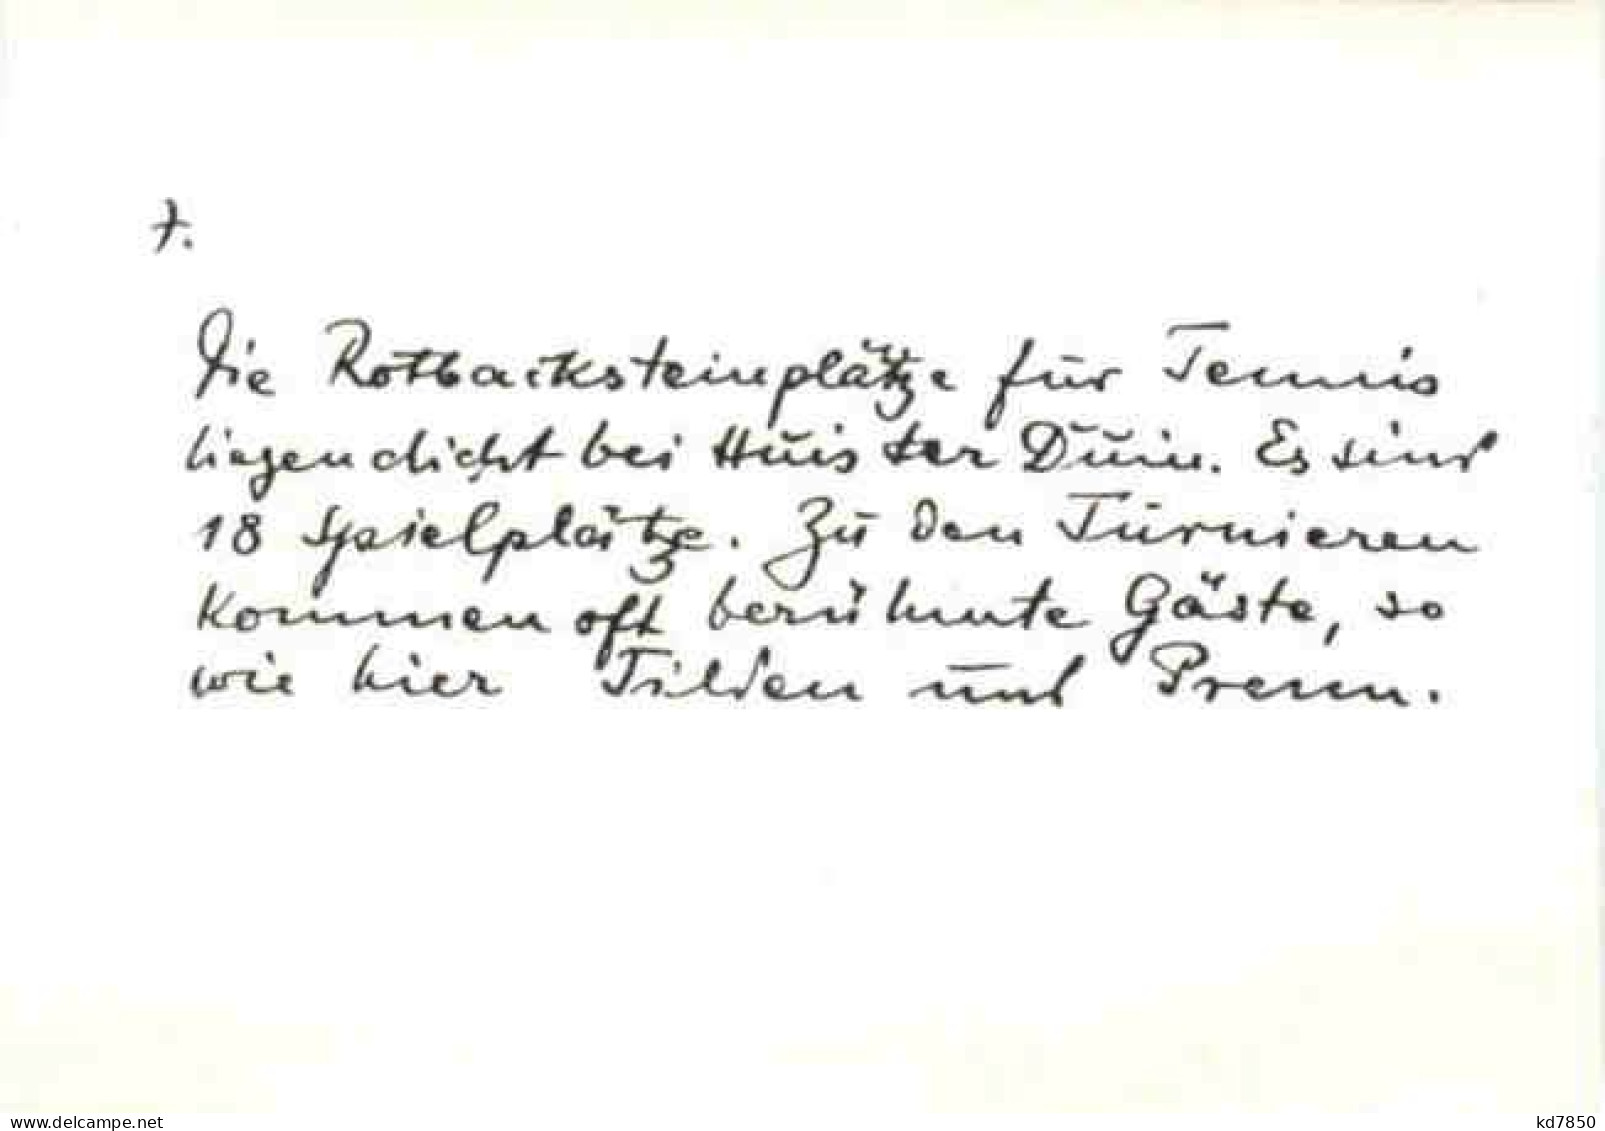 7.
Die Rotbacksteinplätze für Tennis
liegen dicht bei Huis ter Duin. Es sind
18 Spielplätze. Zu den Turnieren
kommen oft berühmte Gäste, so
wie hier Tilden und Prenn.
www.delcampe.net
kd7850